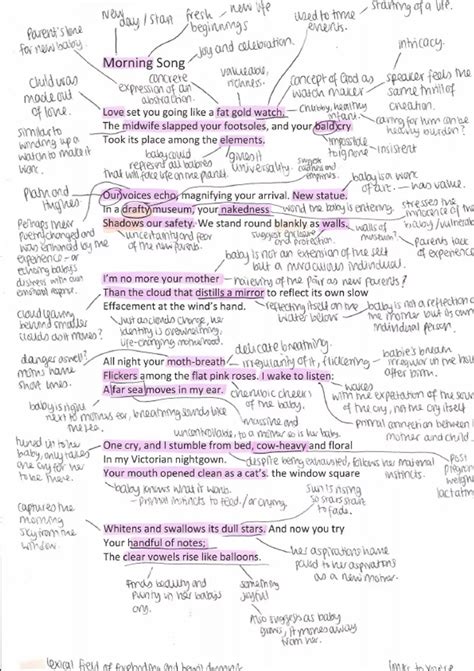 new
day / start
fresh
beginnings
new life
used to time
events.
starting of a life.
Parent's love
for new baby.
joy and celebration.
intricacy.
Morning Song
child was
made out
of love.
concrete
expression of an
abstraction.
valueable,
richness.
concept of God as
watch maker
speaker feels the
same thrill of
creation.
Love set you going like a fat gold watch.
chubby, healthy
infant.
caring for him can be
heavily burden?
The midwife slapped your footsoles, and your bald cry
Took its place among the elements.
impossible
to ignore
insistent
similar to
winding up a
watch to make it
work.
baby could
represent all babies
that will face life on planet.
gives it
universality.
baby is a work
of art. — was value.
Plath and
Hughes.
Our voices echo, magnifying your arrival. New statue.
In a drafty museum, your nakedness
world the baby is entering
stresses the
innocence of the
baby / vulnerable
Shadows our safety. We stand round blankly as walls.
walls of
museum?
Parents lack
of experience.
Perhaps their
poetry changed and
was enhanced by the
experience - or
echoing baby's
distress with own
emotional response.
uncertainty and fear
of the new parents.
and protection.
baby is not an extension of the self
but a miraculous individual.
I'm no more your mother
the pair as new parents?
Than the cloud that distills a mirror to reflect its own slow
Effacement at the wind's hand.
reflecting itself on the
water below
baby is not a reflection of
the mother but its own
individual person.
cloud leaving
behind smaller
clouds as it moves?
Just as clouds change, her
identity is
life-changing motherhood.
delicate breathing.
danger as well?
moths have
short lives.
All night your moth-breath
irregularity of it, flickering
babie's breath
irregular in the hours
after birth.
Flickers among the flat pink roses. I wake to listen:
A far sea moves in my ear.
cherubic cheeks
of the baby.
wakes
with the expectation of the sound
of the cry, not the cry itself
primal connection between
mother and child.
baby is right
next to mothers ear, breathing sounds like
the sea.
massive and
uncontrollable, to a mother so is her baby.
tuned in to her
baby, only takes
one cry for her
to be there.
One cry, and I stumble from bed, cow-heavy and floral
In my Victorian nightgown.
despite being exhausted, follows her maternal
instincts.
post
pregnancy
weight
Your mouth opened clean as a cat's. the window square
baby knows what it wants.
- primal instincts to feed / or crying.
sun is rising
so stars start
to fade.
captures the
morning
sky from the
window.
Whitens and swallows its dull stars. And now you try
Your handful of notes;
The clear vowels rise like balloons.
her aspirations have
paled to her aspirations
as a new mother.
finds beauty and
purity in her baby's
cry.
something
joyful
Also suggests as baby
grows, it moves away
from her.
lexical field of
links to